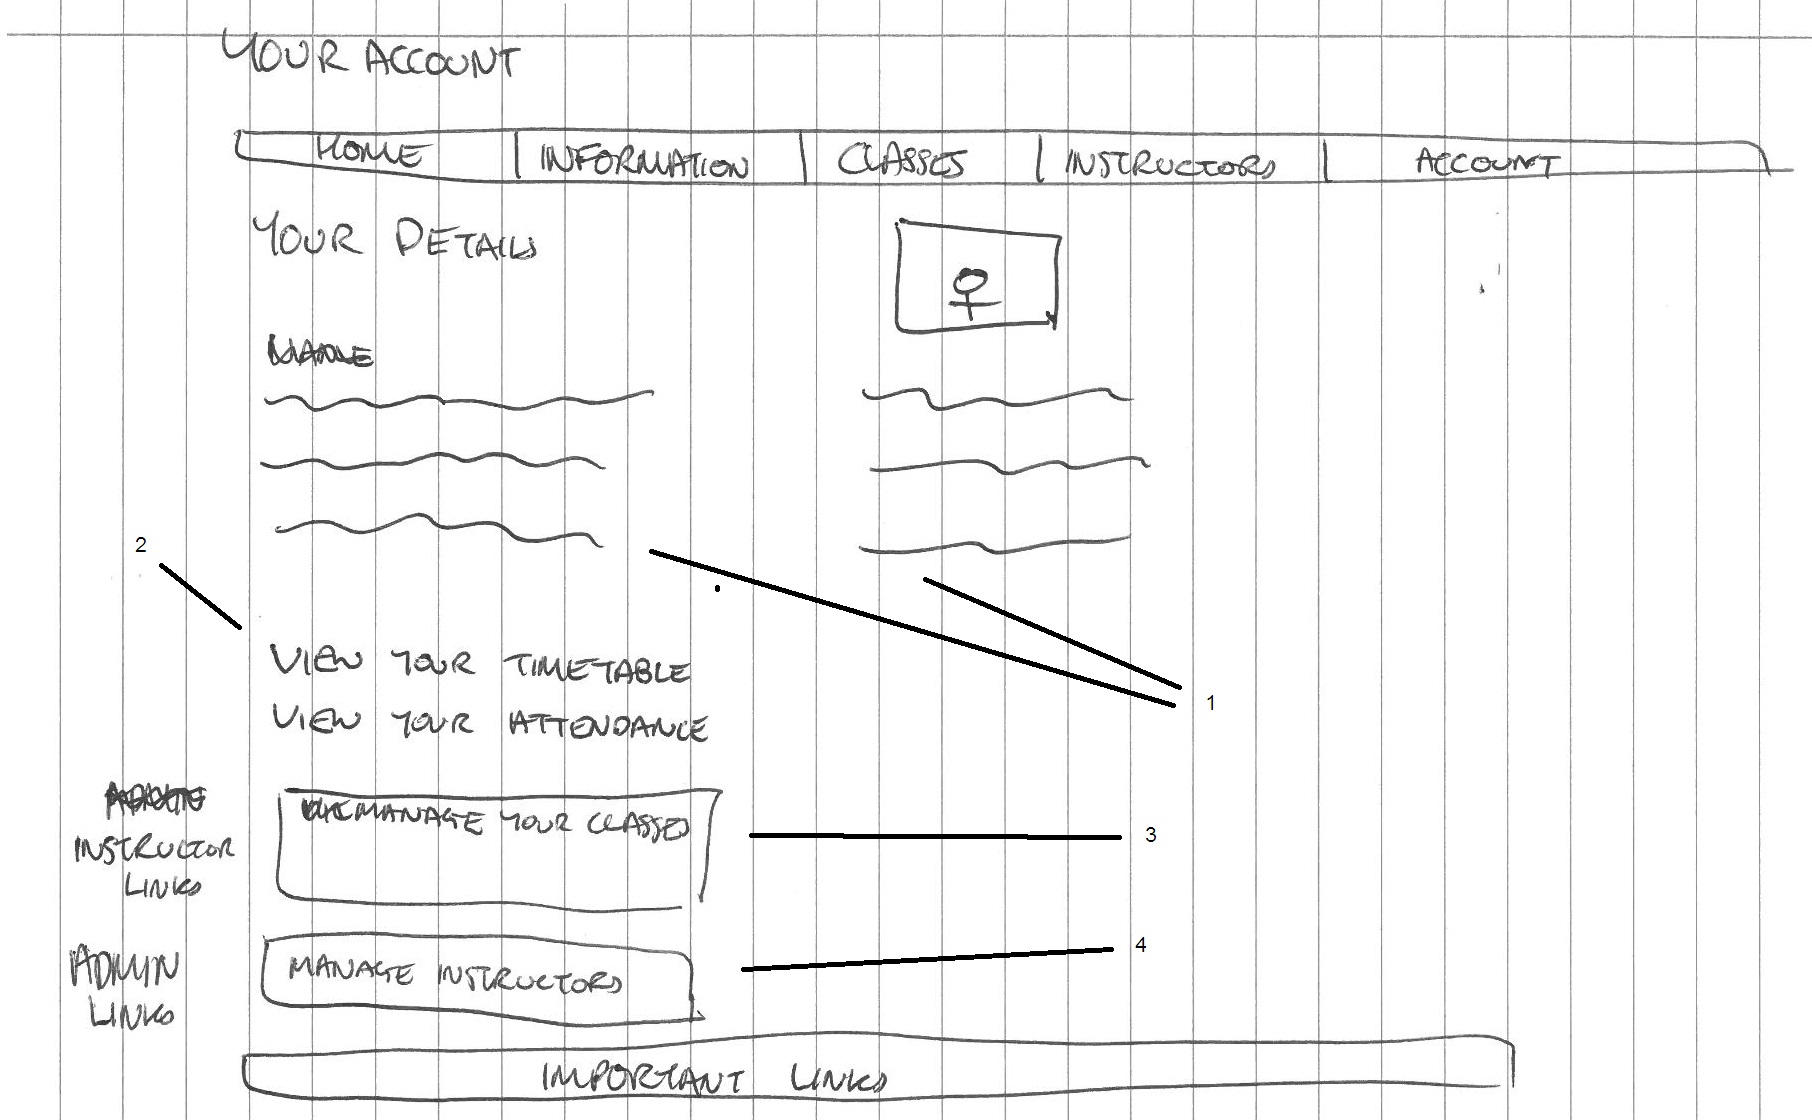 YOUR ACCOUNT
HOME INFORMATION CLASSES INSTRUCTORS ACCOUNT
YOUR DETAILS
2
VIEW YOUR TIMETABLE
1
VIEW YOUR ATTENDANCE
MANAGE YOUR CLASSES
3
INSTRUCTOR
LINKS
4
ADMIN
LINKS
MANAGE INSTRUCTORS
IMPORTANT LINKS